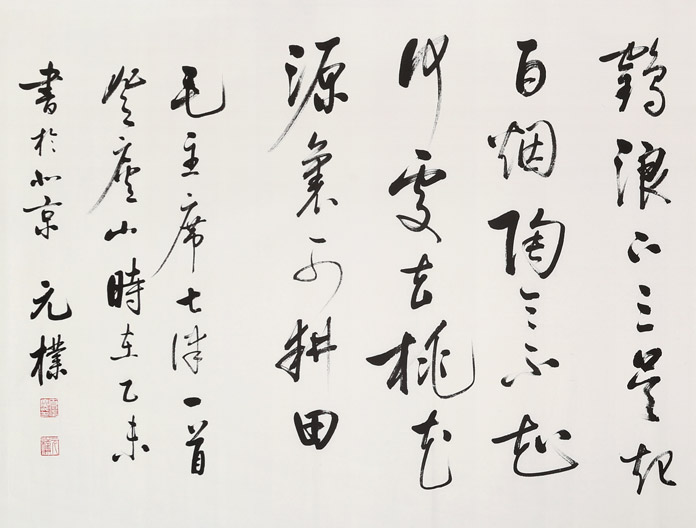 鶴浪下三吳起
白烟陶令不知
何處去桃花
源裏可耕田
毛主席七律一首
登廬山時在乙未
書於北京 元樸